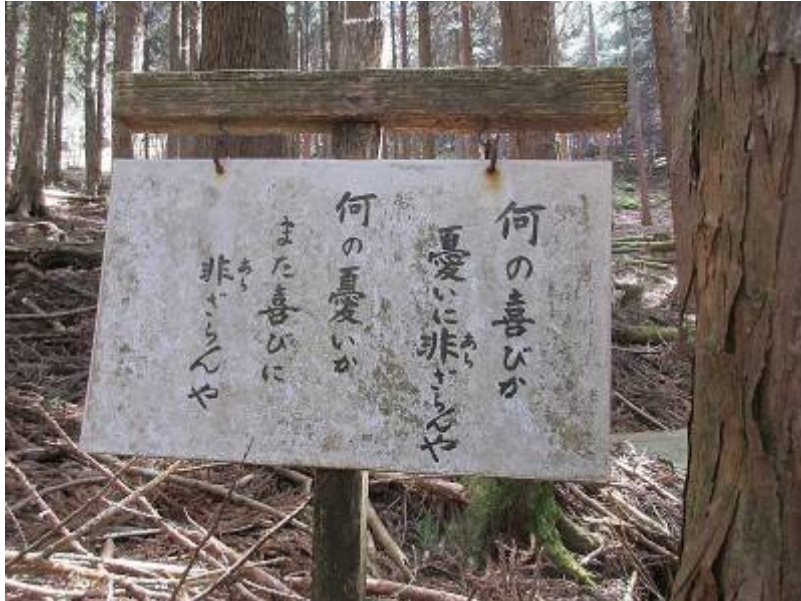 何の喜びか
憂いに非ざらんや
何の憂いか
また喜びに
非ざらんや